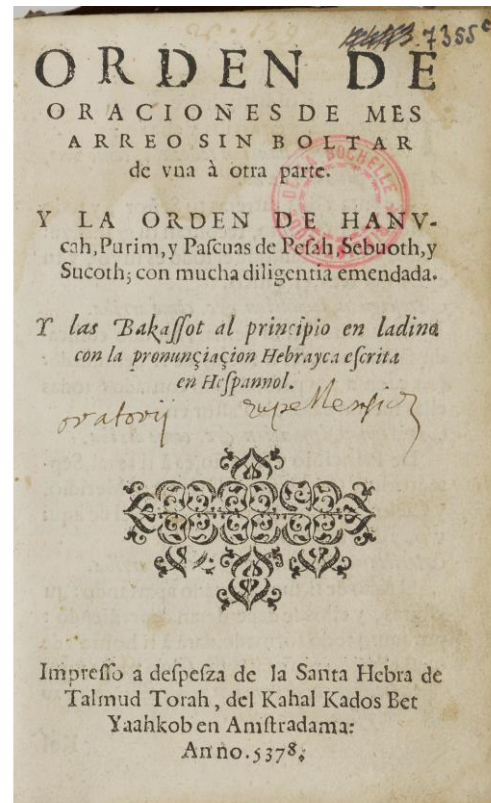 7355c
ORDEN DE
ORACIONES DE MES
ARREO SIN BOLTAR
de vna à otra parte.
Y LA ORDEN DE HANV-
cah, Purim, y Paſcuas de Peſah, Sebuoth, y
Sucoth; con mucha diligentia emendada.
Y las Bakaſſot al principio en ladino
con la pronunçiaçion Hebrayca eſcrita
en Heſpannol.
oratorij
Impreſſo a deſpeſza de la Santa Hebra de
Talmud Torah, del Kahal Kados Bet
Yaahkob en Amſtradama:
Anno. 5378.